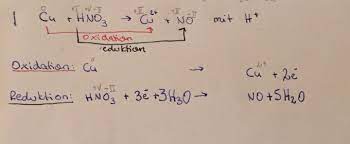 1 Cu + HNO₃ → Cu²⁺ + NO mit H⁺
Oxidation
Reduktion
Oxidation: Cu → Cu²⁺ + 2e⁻
Reduktion: HNO₃ + 3e⁻ + 3H₃O → NO + 5H₂O